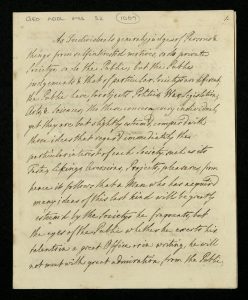 ADD. MSS. 52
As Individuals generally judge of Persons &
things from self interested motives, so do private
Societys so do the Public, but the Public
judgements & that of particular Societys are different
the Public have for object Politics War Legislation
Arts & Sciences, tho these concern every individual
yet they are but slightly estim'd, compar'd with
those ideas that regard immediately the
particular interest of each Society, such as its
Tastes, likings Aversions, Projects, pleasures, from
hence it follows that a Man who has acquired
many ideas of this last kind will be greatly
esteem'd by the Societys he frequents, but
the eyes of the Public whether he exerts his
talents in a great Office or in writing, he will
not meet with great admiration from the Public